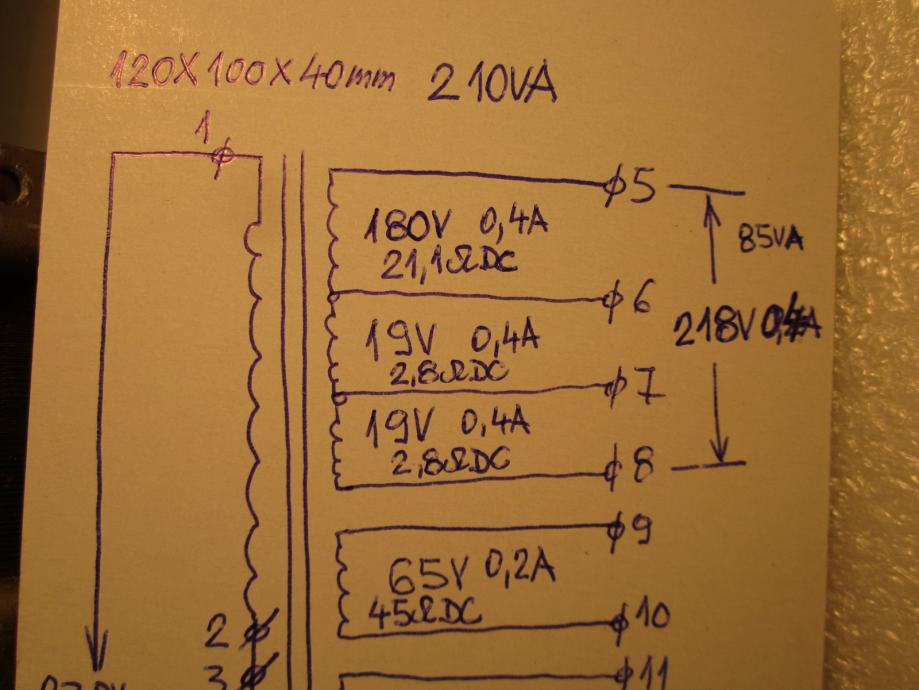 120X100X40mm 210VA
1
5
180V 0,4A
21,1ΩDC
85VA
6
218V 0,4A
19V 0,4A
2,8ΩDC
7
19V 0,4A
2,8ΩDC
8
9
65V 0,2A
45ΩDC
10
2
3
11